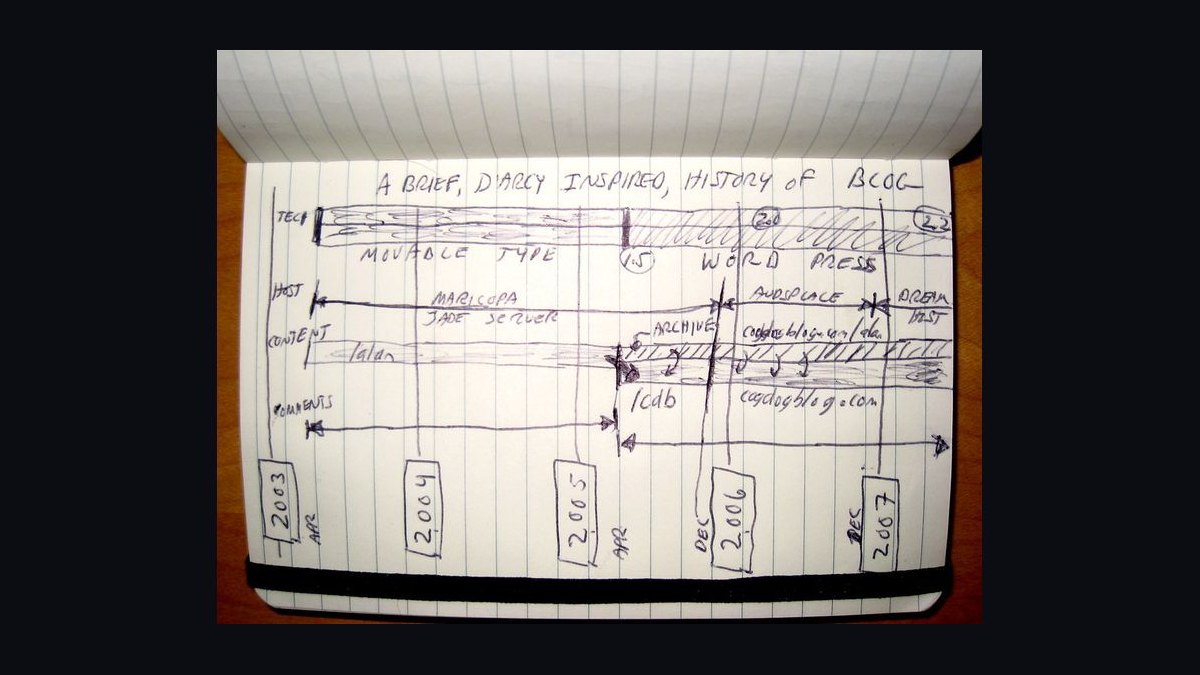 A BRIEF, D'ARCY INSPIRED, HISTORY OF BLOG
TECH
2.0
2.2
MOVABLE TYPE
1.5
WORD PRESS
HOST
MARICOPA
JADE SERVER
AUDSPLACE
DREAM
HOST
CONTENT
/alan
ARCHIVE
cogdogblog.com/alan
/cdb
cogdogblog.com
COMMENTS
2003
APR
2004
2005
APR
DEC
2006
DEC
2007